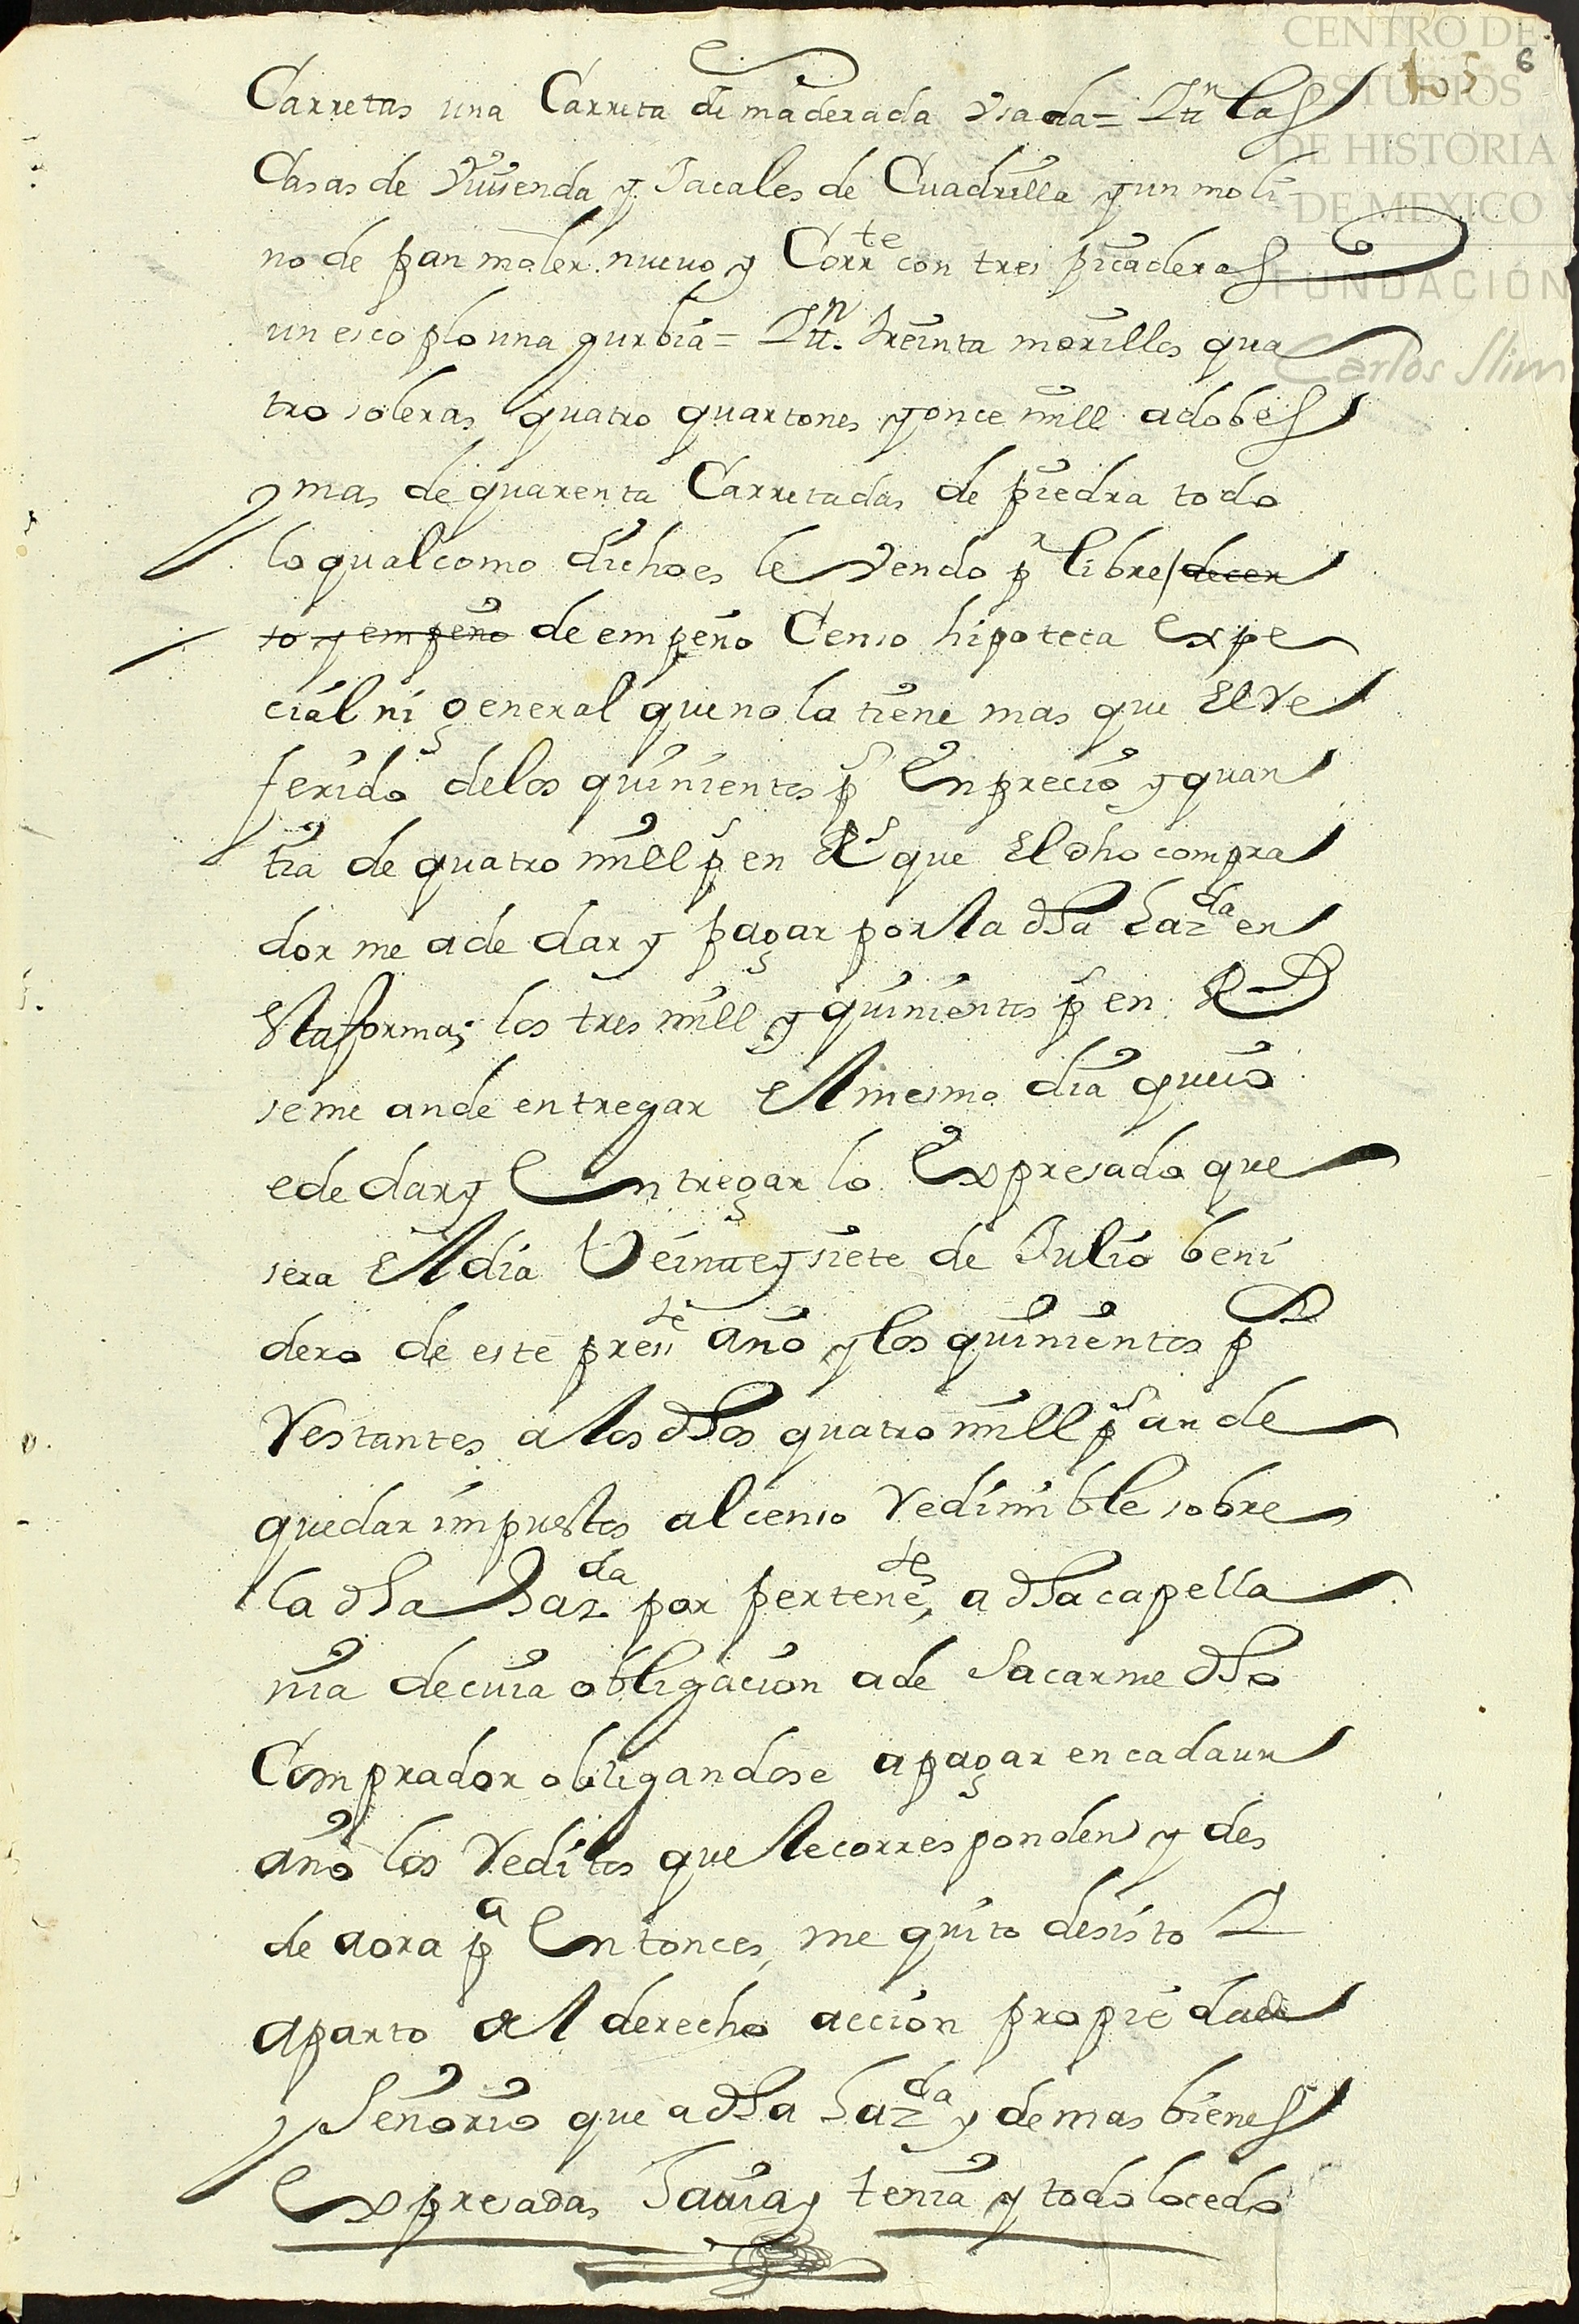 CENTRO DE
ESTUDIOS
DE HISTORIA
DE MEXICO
FUNDACIÓN
Carlos Slim
105 6
Carretas una Carreta de maderada Vsada = Ytt.n las
Casas de Vivienda y Jacales de Cuadrilla y un moli
no de pan moler nuevo y Corr.te con tres picaderas
un escoplo una gurbia = Ytt.n treinta morillos qua
tro soleras quatro quartones y once mill adobes
y mas de quarenta Carretadas de piedra todo
lo qual como dicho es le Vendo p.r libre / de cen
so y empeño de empeño Censo hipoteca Expe
cial ni general que no la tiene mas que El Re
ferido de los quinientos p.s En precio y quan
tia de quatro mill p.s en R.s que El dho compra
dor me a de dar y pagar por la dha Haz.da en
Esta forma; los tres mill y quinientos p.s en R.s
se me an de entregar El mesmo dia que io
e de dar y Entregar lo Expresado que
sera El dia Veinte y siete de Julio beni
dero de este pres.te año y los quinientos p.s
Restantes a los dhos quatro mill p.s an de
quedar impuestos al censo Redimible sobre
la dha Haz.da por pertene a dha capella
nia de cuia obligacion a de Sacarme dho
Comprador obligandose a pagar en cada un
año los Reditos que le corresponden y des
de aora p.a Entonces, me quito desisto Y
aparto del derecho accion propiedad
y Señorio que a dha Haz.da y demas bienes
Expresadas Havia y tenia y todo lo cedo